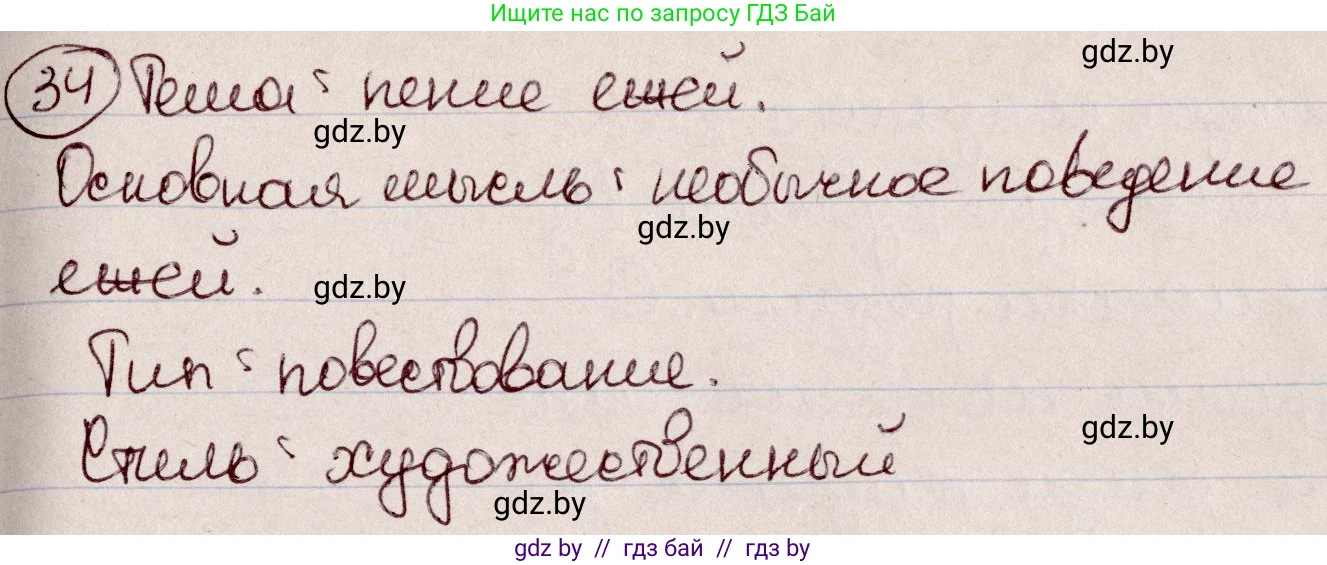 Ищите нас по запросу ГДЗ Бай
gdz.by
34 Тема: пение ежей.
gdz.by
Основная мысль: необычное поведение
gdz.by
ежей.
gdz.by
Тип: повествование.
gdz.by
Стиль: художественный
gdz.by
gdz by // гдз бай // гдз by